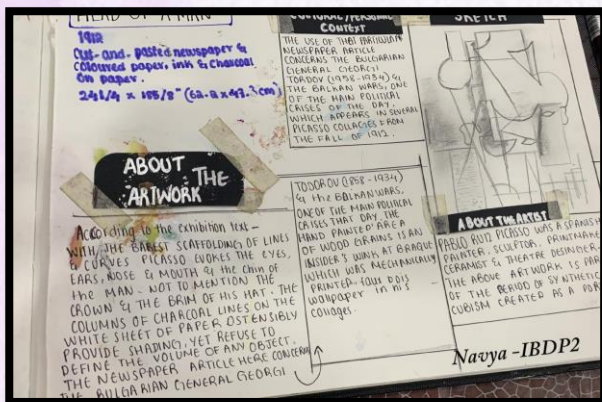 HEAD OF A MAN
1912
Cut-and-pasted newspaper &
coloured paper, ink & charcoal
on paper.
24 1/4 × 185/8" (62.2 × 47.3 cm)
ABOUT THE
ARTWORK
According to the exhibition text -
WITH THE BAREST SCAFFOLDING OF LINES
& CURVES PICASSO EVOKES THE EYES,
EARS, NOSE & MOUTH & the CHIN OF
the MAN - NOT TO MENTION THE
CROWN & THE BRIM OF HIS HAT. THE
COLUMNS OF CHARCOAL LINES ON THE
WHITE SHEET OF PAPER OSTENSIBLY
PROVIDE SHADING, YET REFUSE TO
DEFINE THE VOLUME OF ANY OBJECT.
THE NEWSPAPER ARTICLE HERE CONCERNS
THE BULGARIAN GENERAL GEORGI
CULTURAL/PERSONAL
CONTEXT
THE USE OF THAT PARTICULAR
NEWSPAPER ARTICLE
CONCERNS THE BULGARIAN
GENERAL GEORGI
TORDOV (1958-1934) &
THE BALKAN WARS, ONE
OF THE MAIN POLITICAL
CRISES OF THE DAY,
WHICH APPEARS IN SEVERAL
PICASSO COLLAGES FROM
THE FALL OF 1912.
TODOROV (1858-1934)
& the BALKAN WARS.
ONE OF THE MAIN POLITICAL
CRISES THAT DAY. THE
HAND PAINTED ARE A
OF WOOD GRAINS IS AN
INSIDER'S WINK AT BRAQUE
WHICH WAS MECHANICALLY
PRINTED faux bois
wallpaper in his
collages.
SKETCH
ABOUT THE ARTIST
PABLO RUIZ PICASSO WAS A SPANISH
PAINTER, SCULPTOR, PRINTMAKER
CERAMIST & THEATRE DESIGNER.
THE ABOVE ARTWORK IS PAR
OF THE PERIOD OF SYNTHETIC
CUBISM CREATED AS A POR
Navya -IBDP2